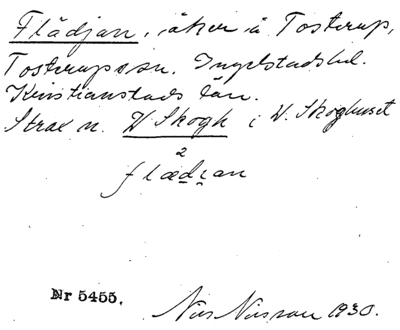 Flädjan, åker å Tosterup,
Tosterups sn. Ingelstads hd.
Kristianstads län.
Strax n. W Skogh i W. Skoghuset
2
flædian
Nr 5455.
Nils Nilsson 1930.